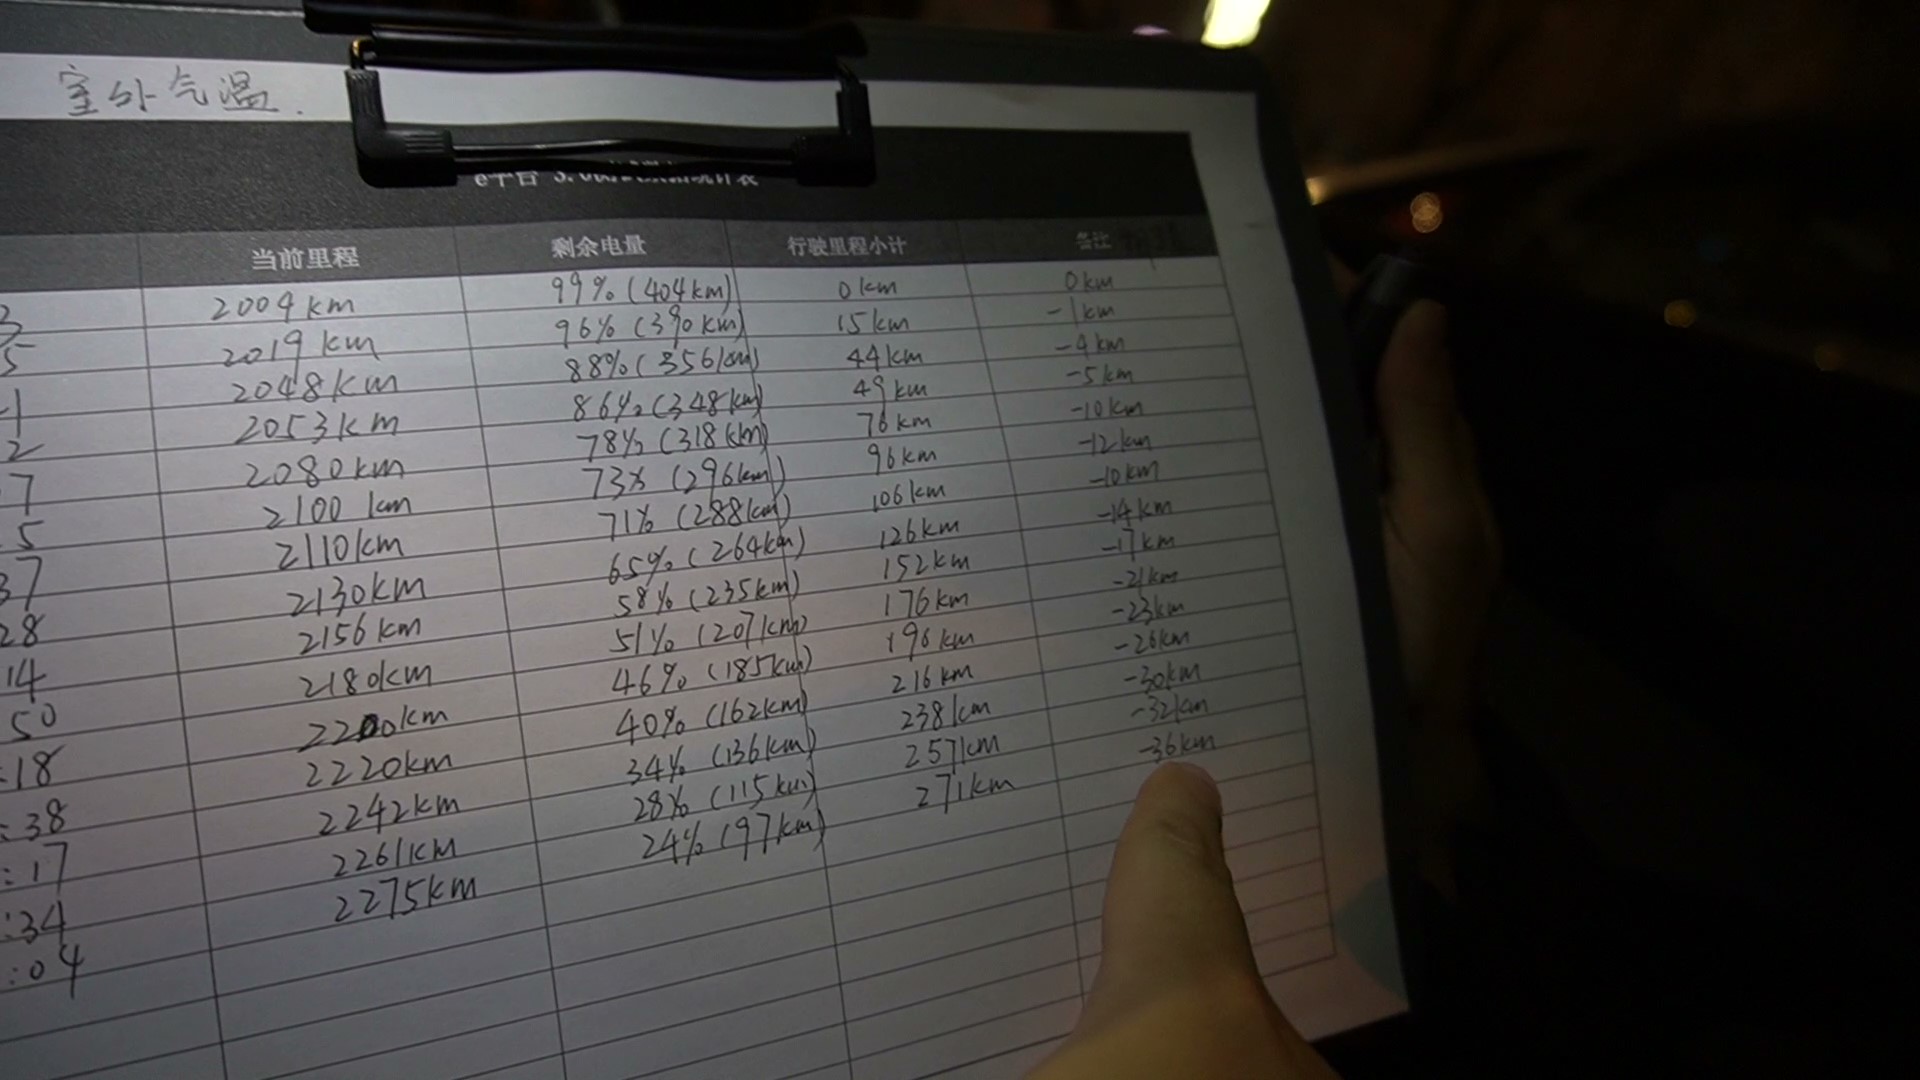 室外气温.
e平台 3.0
当前里程 剩余电量 行驶里程小计 备注
3 2004km 99%(404km) 0km 0km
5 2019km 96%(390km) 15km -1km
1 2048km 88%(356km) 44km -4km
2 2053km 86%(348km) 49km -5km
7 2080km 78%(318km) 76km -10km
5 2100km 73%(296km) 96km -12km
37 2110km 71%(288km) 106km -10km
28 2130km 65%(264km) 126km -14km
14 2156km 58%(235km) 152km -17km
50 2180km 51%(207km) 176km -21km
:18 2200km 46%(185km) 196km -23km
:38 2220km 40%(162km) 216km -26km
:17 2242km 34%(136km) 238km -30km
:34 2261km 28%(115km) 257km -32km
:04 2275km 24%(97km) 271km -36km